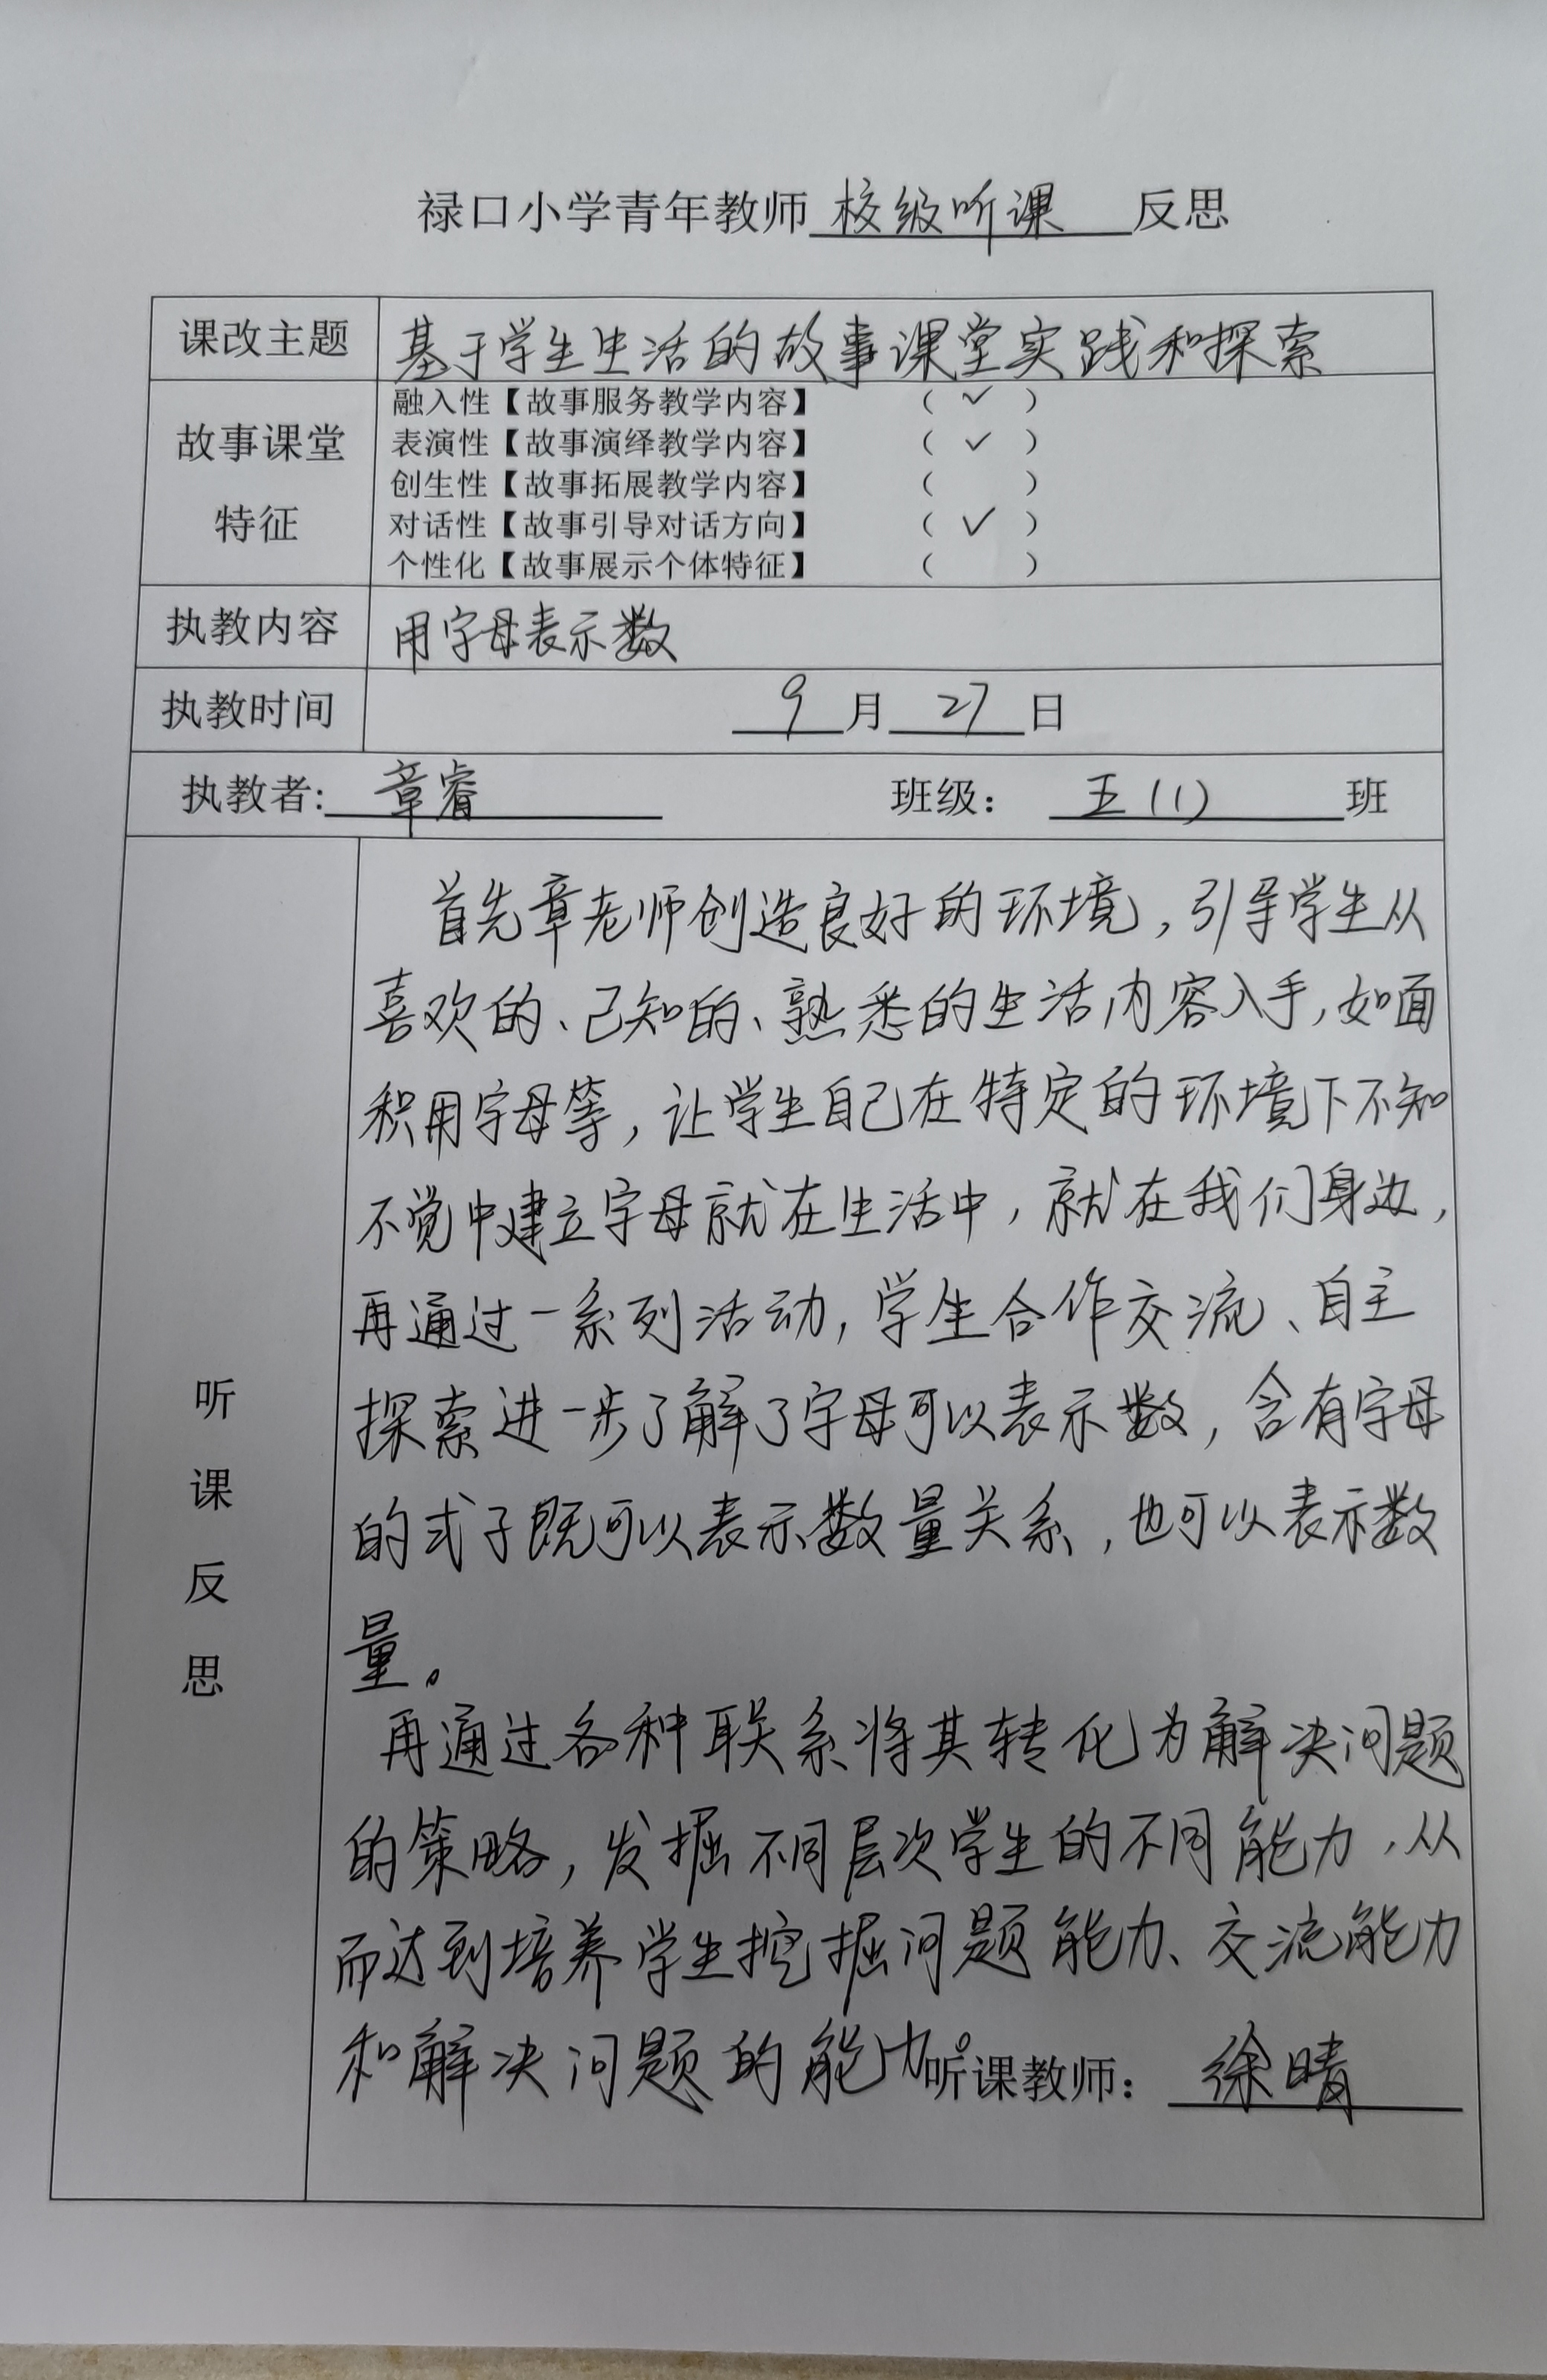 禄口小学青年教师校级听课反思
课改主题 基于学生生活的故事课堂实践和探索
故事课堂特征
融入性【故事服务教学内容】 ( ✓ )
表演性【故事演绎教学内容】 ( ✓ )
创生性【故事拓展教学内容】 ( )
对话性【故事引导对话方向】 ( ✓ )
个性化【故事展示个体特征】 ( )
执教内容 用字母表示数
执教时间 9月27日
执教者: 章睿 班级： 五(1) 班
听课反思
首先章老师创造良好的环境，引导学生从
喜欢的、己知的、熟悉的生活内容入手，如面
积用字母等，让学生自己在特定的环境下不知
不觉中建立字母就在生活中，就在我们身边，
再通过一系列活动，学生合作交流、自主
探索进一步了解了字母可以表示数，含有字母
的式子既可以表示数量关系，也可以表示数
量。
再通过各种联系将其转化为解决问题
的策略，发掘不同层次学生的不同能力，从
而达到培养学生挖掘问题能力、交流能力
和解决问题的能力。
听课教师： 徐晴